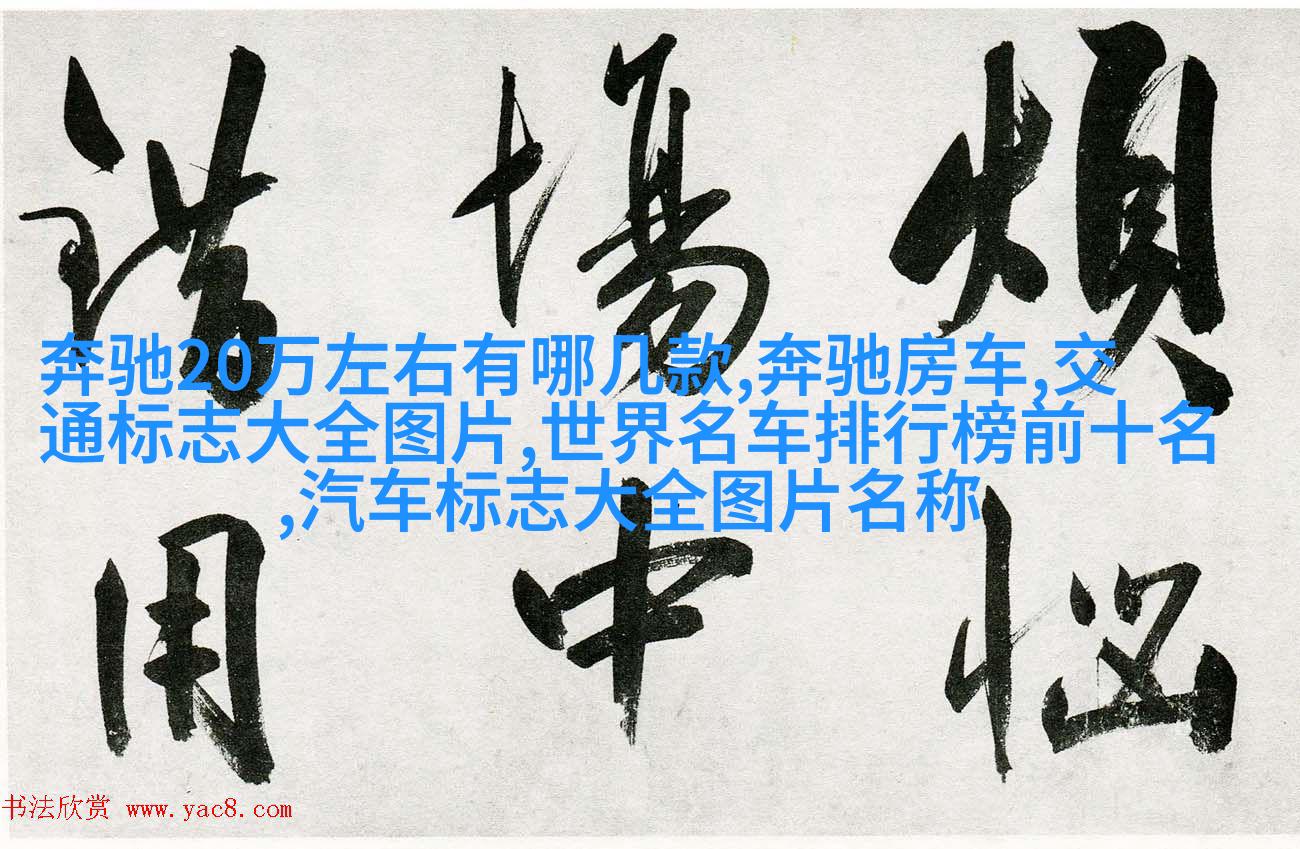 煩惱
場中
錯用
奔驰20万左右有哪几款,奔驰房车,交
通标志大全图片,世界名车排行榜前十名
,汽车标志大全图片名称
书法欣赏 www.yac8.com